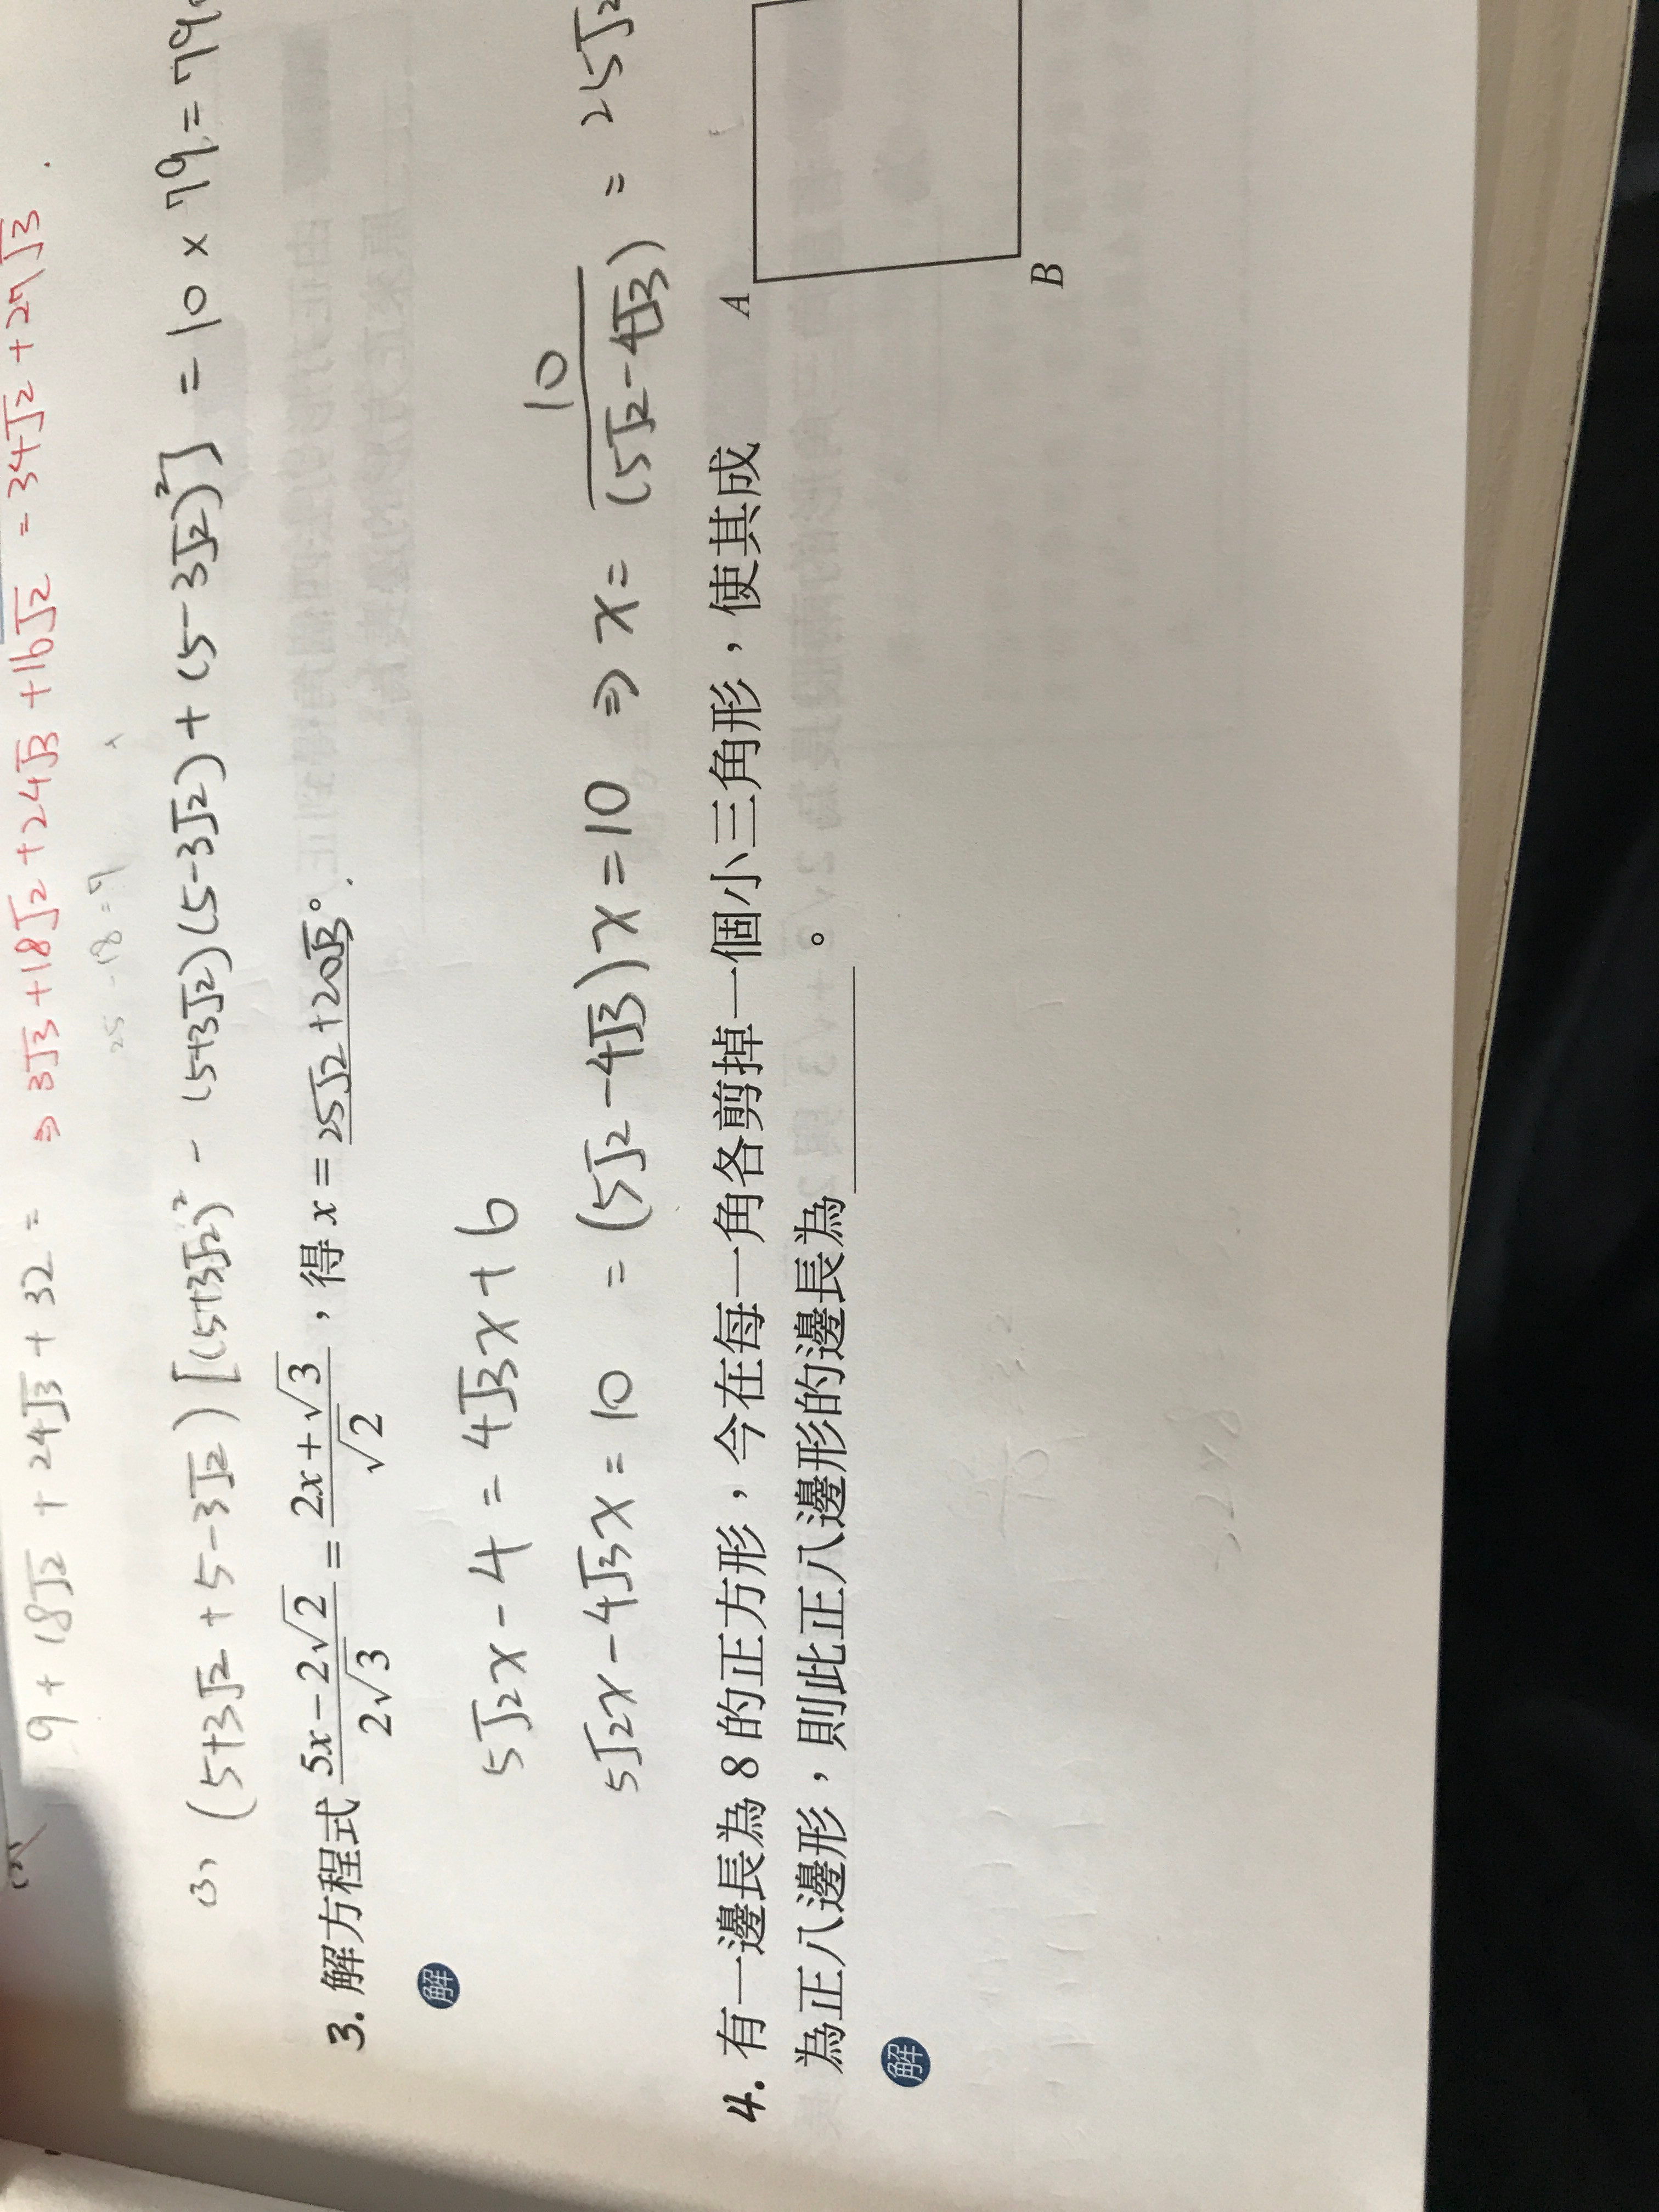 9 + 18√2 + 24√3 + 32 =
⇒ 3√3 + 18√2 + 24√3 + 16√2 = 34√2 + 27√3
25 - 18 = 7
(3) (5+3√2 + 5-3√2) [(5+3√2)² - (5+3√2)(5-3√2) + (5-3√2)²] = 10 × 79 = 790
3. 解方程式 (5x-2√2)/(2√3) = (2x+√3)/√2 ，得 x = 25√2+20√3 。
解
5√2x - 4 = 4√3x + 6
5√2x - 4√3x = 10 = (5√2 - 4√3)x = 10 ⇒ x = 10/(5√2-4√3) = 25√2
4. 有一邊長為 8 的正方形，今在每一角各剪掉一個小三角形，使其成
為正八邊形，則此正八邊形的邊長為＿＿＿＿＿。
A
B
解